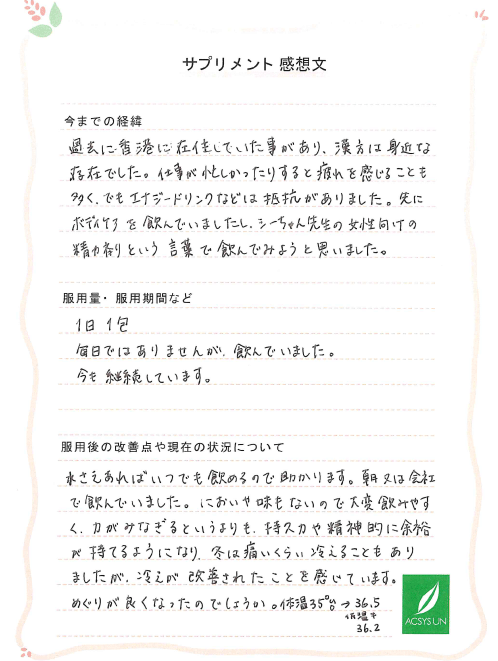 サプリメント 感想文
今までの経緯
過去に香港に在住していた事があり、漢方は身近な
存在でした。仕事が忙しかったりすると疲れを感じることも
多く、でもエナジードリンクなどは抵抗がありました。先に
ボディケアを飲んでいましたし、シーちゃん先生の女性向けの
精力剤という言葉で飲んでみようと思いました。
服用量・服用期間など
1日 1包
毎日ではありませんが、飲んでいました。
今も継続しています。
服用後の改善点や現在の状況について
水さえあればいつでも飲めるので助かります。朝又は会社
で飲んでいました。においや味もないので大変飲みやす
く、力がみなぎるというよりも、持久力や精神的に余裕
が持てるようになり、冬は痛いくらい冷えることもあり
ましたが、冷えが改善されたことを感じています。
めぐりが良くなったのでしょうか。体温35° → 36.5
低温
36.2
ACSYS UN